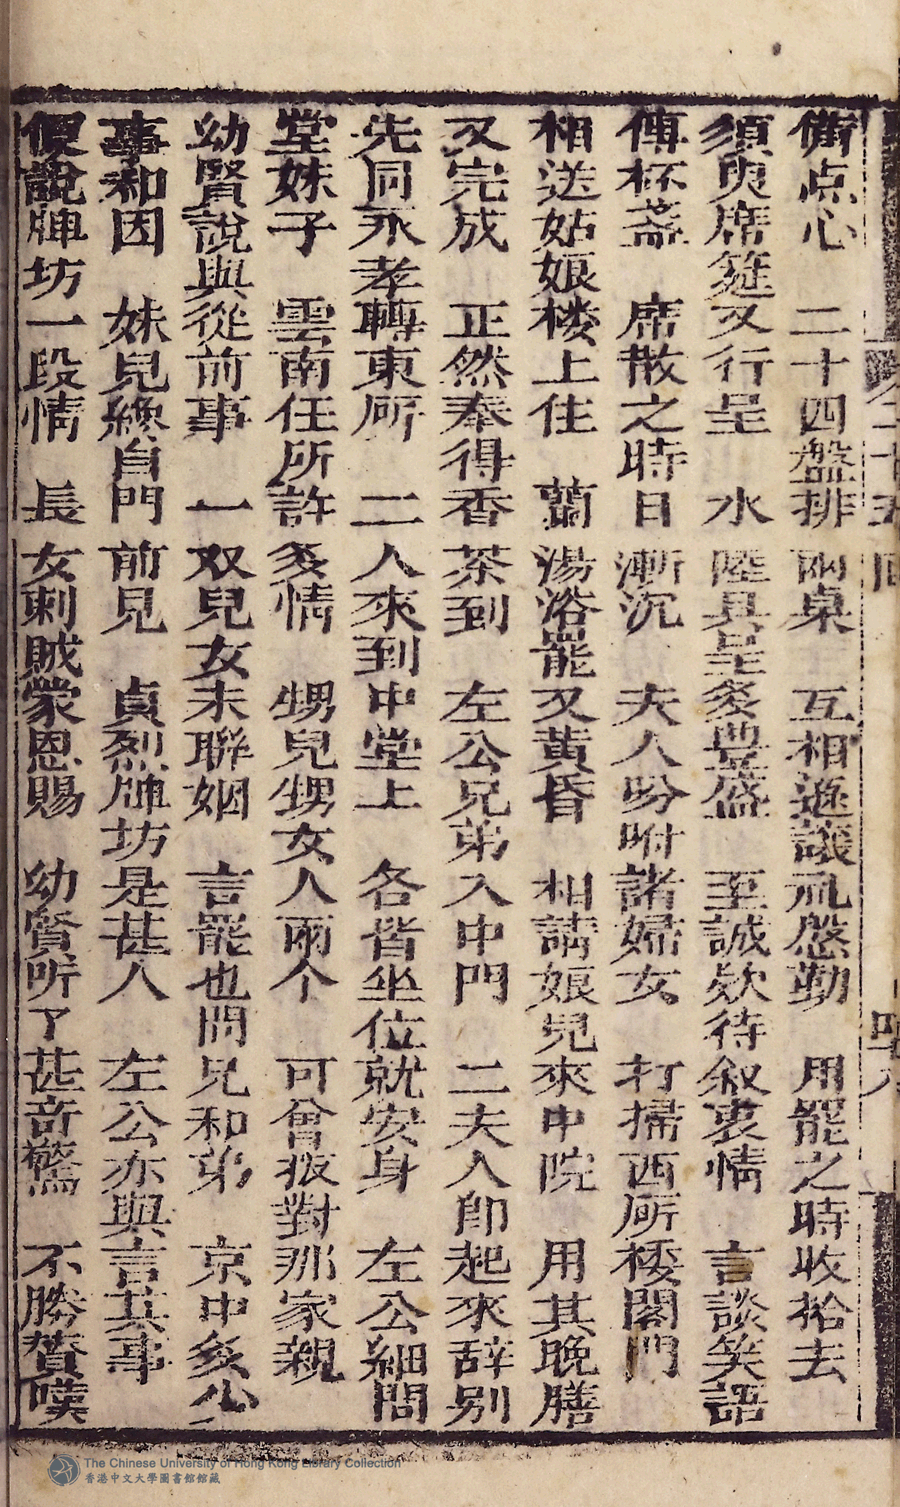 俻点心　二十四盤排兩桌　互相遜讓礼慇勤　用罷之時收拾去
須臾席筵又行呈　水陸具呈多豊盛　至誠欵待叙衷情　言談笑語
傳杯盞　席散之時日漸沉　夫人吩咐諸婦女　打掃西所楼閣門
相送姑娘楼上住　蘭湯浴罷又黄昏　相請娘兒來中院　用其晚膳
又完成　正然奉得香茶到　左公兄弟入中門　二夫人即起來辞别
先同永孝轉東所　二人來到中堂上　各皆坐位就安身　左公細問
堂妹子　雲南任所許多情　甥兒甥女人兩个　可曾扳對那家親
幼賢說與從前事　一双兒女未聯姻　言罷也問兄和弟　京中多少
事和因　妹兒緣自門前見　貞烈牌坊是甚人　左公亦與言其事
便說牌坊一段情　長女刺賊蒙恩賜　幼賢听了甚奇驚　不勝賛嘆
The Chinese University of Hong Kong Library Collection
香港中文大學圖書館館藏